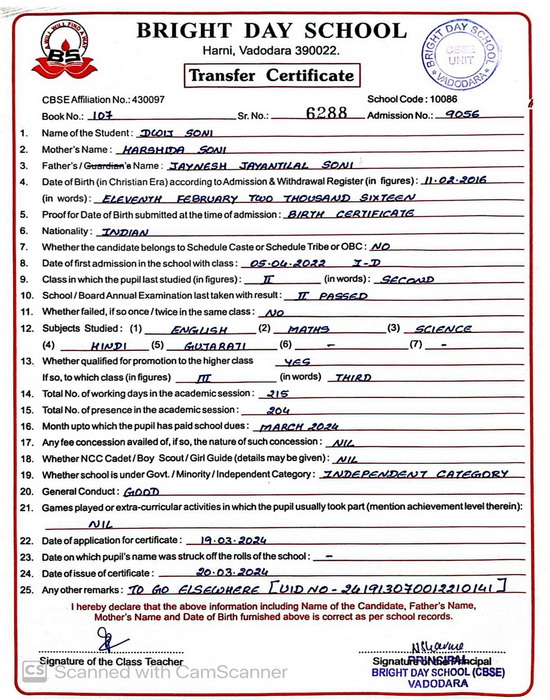 A WILL WILL FIND A WAY
BS
BRIGHT DAY SCHOOL
Harni, Vadodara 390022.
Transfer Certificate
BRIGHT DAY SCHOOL
CBSE
UNIT
* VADODARA *
CBSE Affiliation No.: 430097 School Code : 10086
Book No.: 107 Sr. No.: 6288 Admission No.: 9056
1. Name of the Student : DWIJ SONI
2. Mother's Name : HARSHIDA SONI
3. Father's / Guardian's Name : JAYNESH JAYANTILAL SONI
4. Date of Birth (in Christian Era) according to Admission & Withdrawal Register (in figures) : 11-02-2016
(in words) : ELEVENTH FEBRUARY TWO THOUSAND SIXTEEN
5. Proof for Date of Birth submitted at the time of admission : BIRTH CERTIFICATE
6. Nationality : INDIAN
7. Whether the candidate belongs to Schedule Caste or Schedule Tribe or OBC : NO
8. Date of first admission in the school with class : 05.04.2022 I-D
9. Class in which the pupil last studied (in figures) : II (in words) : SECOND
10. School / Board Annual Examination last taken with result : II PASSED
11. Whether failed, if so once / twice in the same class : NO
12. Subjects Studied : (1) ENGLISH (2) MATHS (3) SCIENCE
(4) HINDI (5) GUJARATI (6) - (7) -
13. Whether qualified for promotion to the higher class YES
If so, to which class (in figures) III (in words) THIRD
14. Total No. of working days in the academic session : 215
15. Total No. of presence in the academic session : 204
16. Month upto which the pupil has paid school dues : MARCH 2024
17. Any fee concession availed of, if so, the nature of such concession : NIL
18. Whether NCC Cadet / Boy Scout / Girl Guide (details may be given) : NIL
19. Whether school is under Govt. / Minority / Independent Category : INDEPENDENT CATEGORY
20. General Conduct : GOOD
21. Games played or extra-curricular activities in which the pupil usually took part (mention achievement level therein):
NIL
22. Date of application for certificate : 19.03.2024
23. Date on which pupil's name was struck off the rolls of the school : -
24. Date of issue of certificate : 20.03.2024
25. Any other remarks : TO GO ELSEWHERE [UID NO - 241913070012210141]
I hereby declare that the above information including Name of the Candidate, Father's Name,
Mother's Name and Date of Birth furnished above is correct as per school records.
Signature of the Class Teacher Signature of the Principal
PRINCIPAL
BRIGHT DAY SCHOOL (CBSE)
VADODARA
CS Scanned with CamScanner